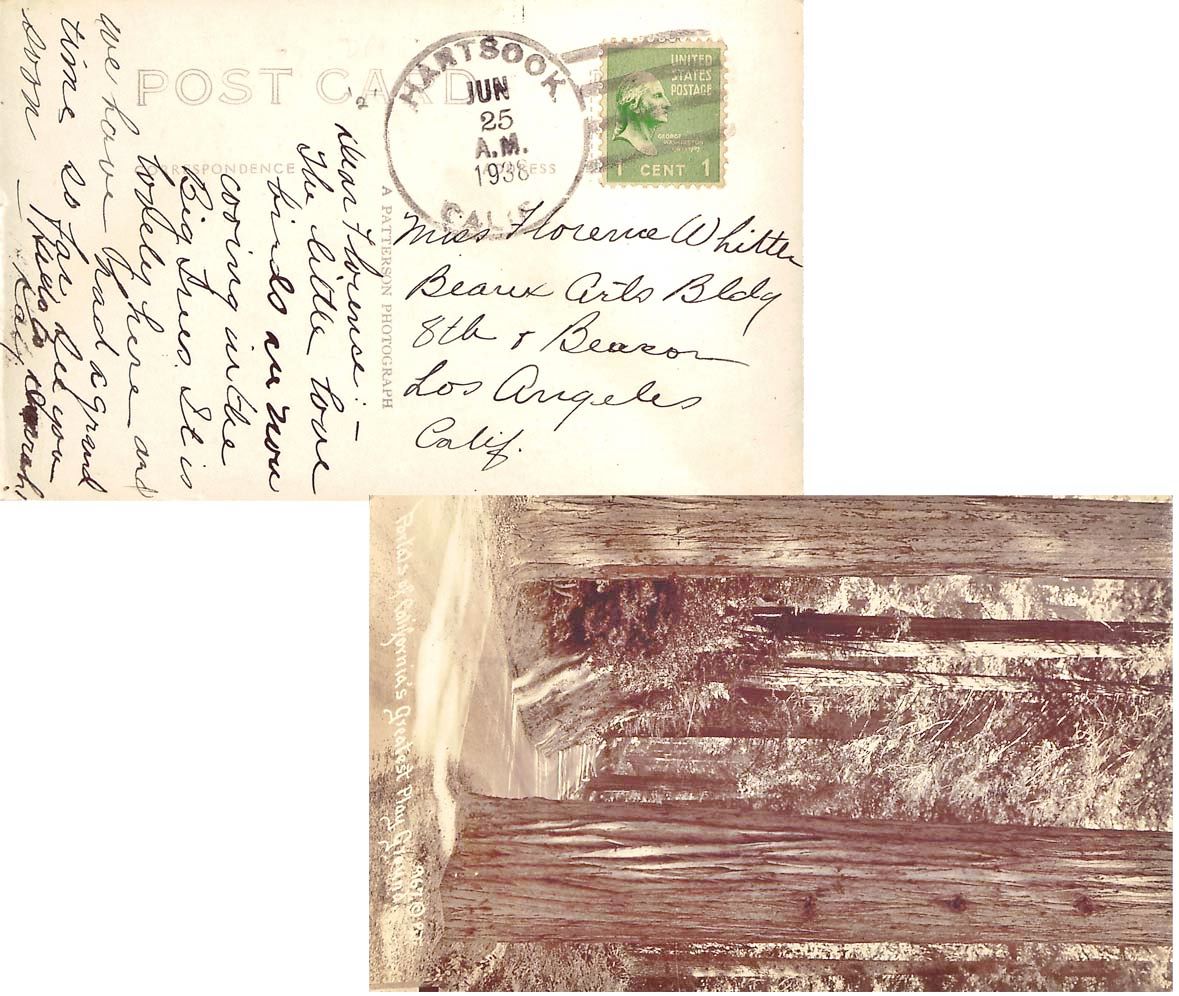 POST CARD
CORRESPONDENCE
ADDRESS
HARTSOOK
JUN
25
A.M.
1938
CALIF.
UNITED
STATES
POSTAGE
GEORGE
WASHINGTON
1 CENT 1
A PATTERSON PHOTOGRAPH
Miss Florence Whitten
Beaux Arts Bldg
8th & Beacon
Los Angeles
Calif.
Dear Florence:-
The little love
birds are now
cooing in the
Big Trees. It is
lovely here and
we have had a grand
time so far. See you
soon -
Portals of California's Greatest Play